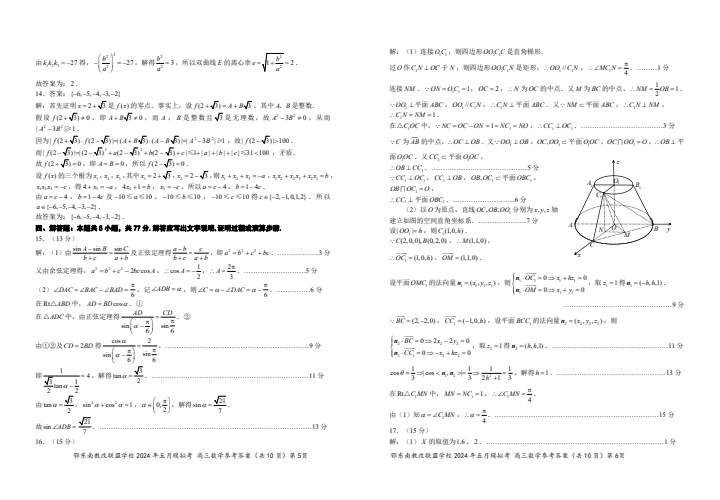 由k₁k₂k₃=-27得，-(b²/a²)³=-27，解得b²/a²=3，所以双曲线E的离心率e=√(1+b²/a²)=2．
故答案为：2．
14．答案：{-6,-5,-4,-3,-2}
解：首先证明x=2+√3是f(x)的零点．事实上，设f(2+√3)=A+B√3，其中A、B是整数．
假设f(2+√3)≠0，即A+B√3≠0，而A，B是整数且√3是无理数，故A²-3B²≠0，从而
|A²-3B²|≥1．
因为|f(2+√3)·f(2-√3)|=|(A+B√3)·(A-B√3)|=|A²-3B²|≥1，故|f(2-√3)|>100．
而|f(2-√3)|=|(2-√3)³+a(2-√3)²+b(2-√3)+c|≤1+|a|+|b|+|c|≤31<100，矛盾．
故f(2+√3)=0，即A=B=0，所以f(2-√3)=0．
设f(x)的三个根为x₁,x₂,x₃，其中x₁=2+√3，x₂=2-√3，则x₁+x₂+x₃=-a，x₁x₂+x₂x₃+x₃x₁=b，
x₁x₂x₃=-c，得4+x₃=-a，4x₃+1=b，x₃=-c，所以a=c-4，b=1-4c．
由a=c-4，b=1-4c及-10≤a≤10，-10≤b≤10，-10≤c≤10得c∈{-2,-1,0,1,2}．所以
a∈{-6,-5,-4,-3,-2}．
故答案为：{-6,-5,-4,-3,-2}．
四、解答题：本题共5小题，共77分．解答应写出文字说明、证明过程或演算步骤．
15．（13分）
解：（1）由(sinA-sinB)/(b+c)=sinC/(a+b)及正弦定理得(a-b)/(b+c)=c/(a+b)，即a²=b²+c²+bc．…………………3分
又由余弦定理得，a²=b²+c²-2bccosA，∴cosA=-1/2，∴A=2π/3．…………………5分
（2）∠DAC=∠BAC-∠BAD=π/6，记∠ADB=α，则∠C=α-∠DAC=α-π/6．…………6分
在Rt△ABD中，AD=BDcosα．①
在△ADC中，由正弦定理得AD/sin(α-π/6)=CD/sin π/6．②
由①②及CD=2BD得cosα/sin(α-π/6)=2/sin π/6，…………………9分
即1/(√3/2 tanα-1/2)=4，解得tanα=√3/2．…………………11分
由tanα=√3/2，sin²α+cos²α=1，α∈(0,π/2)，解得sinα=√21/7．
故sin∠ADB=√21/7．…………………13分
16．（15分）
鄂东南教改联盟学校2024年五月模拟考 高三数学参考答案（共10页）第5页
解：（1）连接O₁C₁，则四边形OO₁C₁C是直角梯形．
过O作C₁N⊥OC于N，则四边形OO₁C₁N是矩形，∴OO₁//C₁N，∴∠MC₁N=π/4．…………1分
连接NM．∵ON=O₁C₁=1，OC=2，∴N为OC的中点．又M为BC的中点，∴NM=1/2OB=1．
∵OO₁⊥平面ABC，OO₁//C₁N，∴C₁N⊥平面ABC．又∵NM⊂平面ABC，∴C₁N⊥NM，
∴C₁N=NM=1．
在△C₁OC中，∵NC=OC-ON=1=NC₁=NO，∴CC₁⊥OC₁．…………………3分
∵C为AB的中点，∴OC⊥OB．又∵OO₁⊥OB，OC,OO₁⊂平面O₁OC，OC∩OO₁=O，∴OB⊥平
面O₁OC．又CC₁⊂平面O₁OC，
∴OB⊥CC₁．…………………5分
∵CC₁⊥OC₁，CC₁⊥OB，OB,OC₁⊂平面OBC₁，
OB∩OC₁=O，
∴CC₁⊥平面OBC₁．…………………6分
（2）以O为原点，直线OC,OB,OO₁分别为x,y,z轴
建立如图的空间直角坐标系．…………7分
设|OO₁|=h，则C₁(1,0,h)．
∵C(2,0,0),B(0,2,0)，∴M(1,1,0)．
∴OC₁=(1,0,h)，OM=(1,1,0)．
z
A₁
O₁
B₁
C₁
A
O
N
M
B
y
C
x
设平面OMC₁的法向量n₁=(x₁,y₁,z₁)，则{n₁·OC₁=0⇒x₁+hz₁=0 n₁·OM=0⇒x₁+y₁=0，取z₁=1得n₁=(-h,h,1)．
…………………9分
∵BC=(2,-2,0)，CC₁=(-1,0,h)，设平面BCC₁的法向量n₂=(x₂,y₂,z₂)，则
{n₂·BC=0⇒2x₂-2y₂=0 n₂·CC₁=0⇒-x₂+hz₂=0，取z₂=1得n₂=(h,h,1)．…………………11分
cosθ=1/3⇒|cos<n₁,n₂>|=1/3⇒1/(2h²+1)=1/3，解得h=1．…………………13分
在Rt△C₁MN中，MN=NC₁=1，∴∠C₁MN=π/4．
由（1）知α=∠C₁MN，∴α=π/4．…………………15分
17．（15分）
解：（1）X的取值为1.6，2．…………………1分
鄂东南教改联盟学校2024年五月模拟考 高三数学参考答案（共10页）第6页